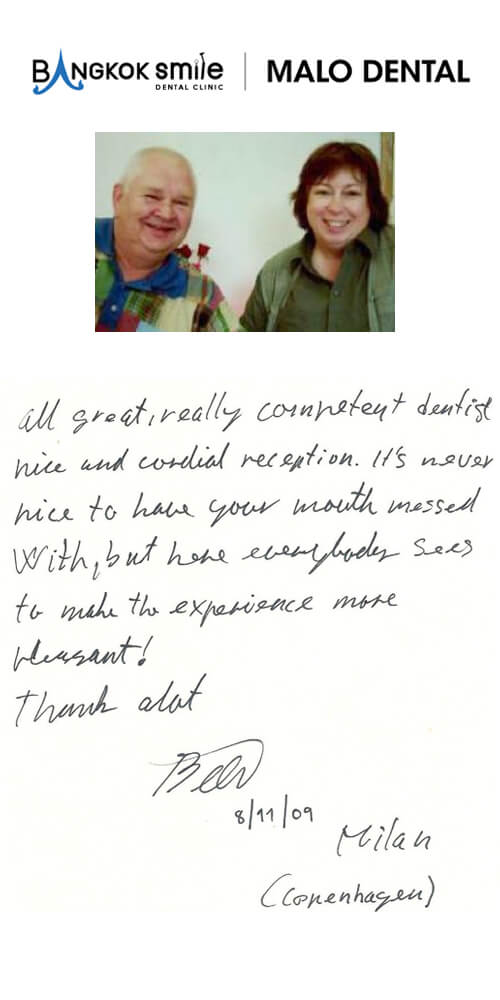 BANGKOK smile | MALO DENTAL
DENTAL CLINIC
all great, really competent dentist
nice and cordial reception. It's never
nice to have your mouth messed
with, but here everybody sees
to make the experience more
pleasant!
Thank alot
8/11/09
Milan
(Copenhagen)